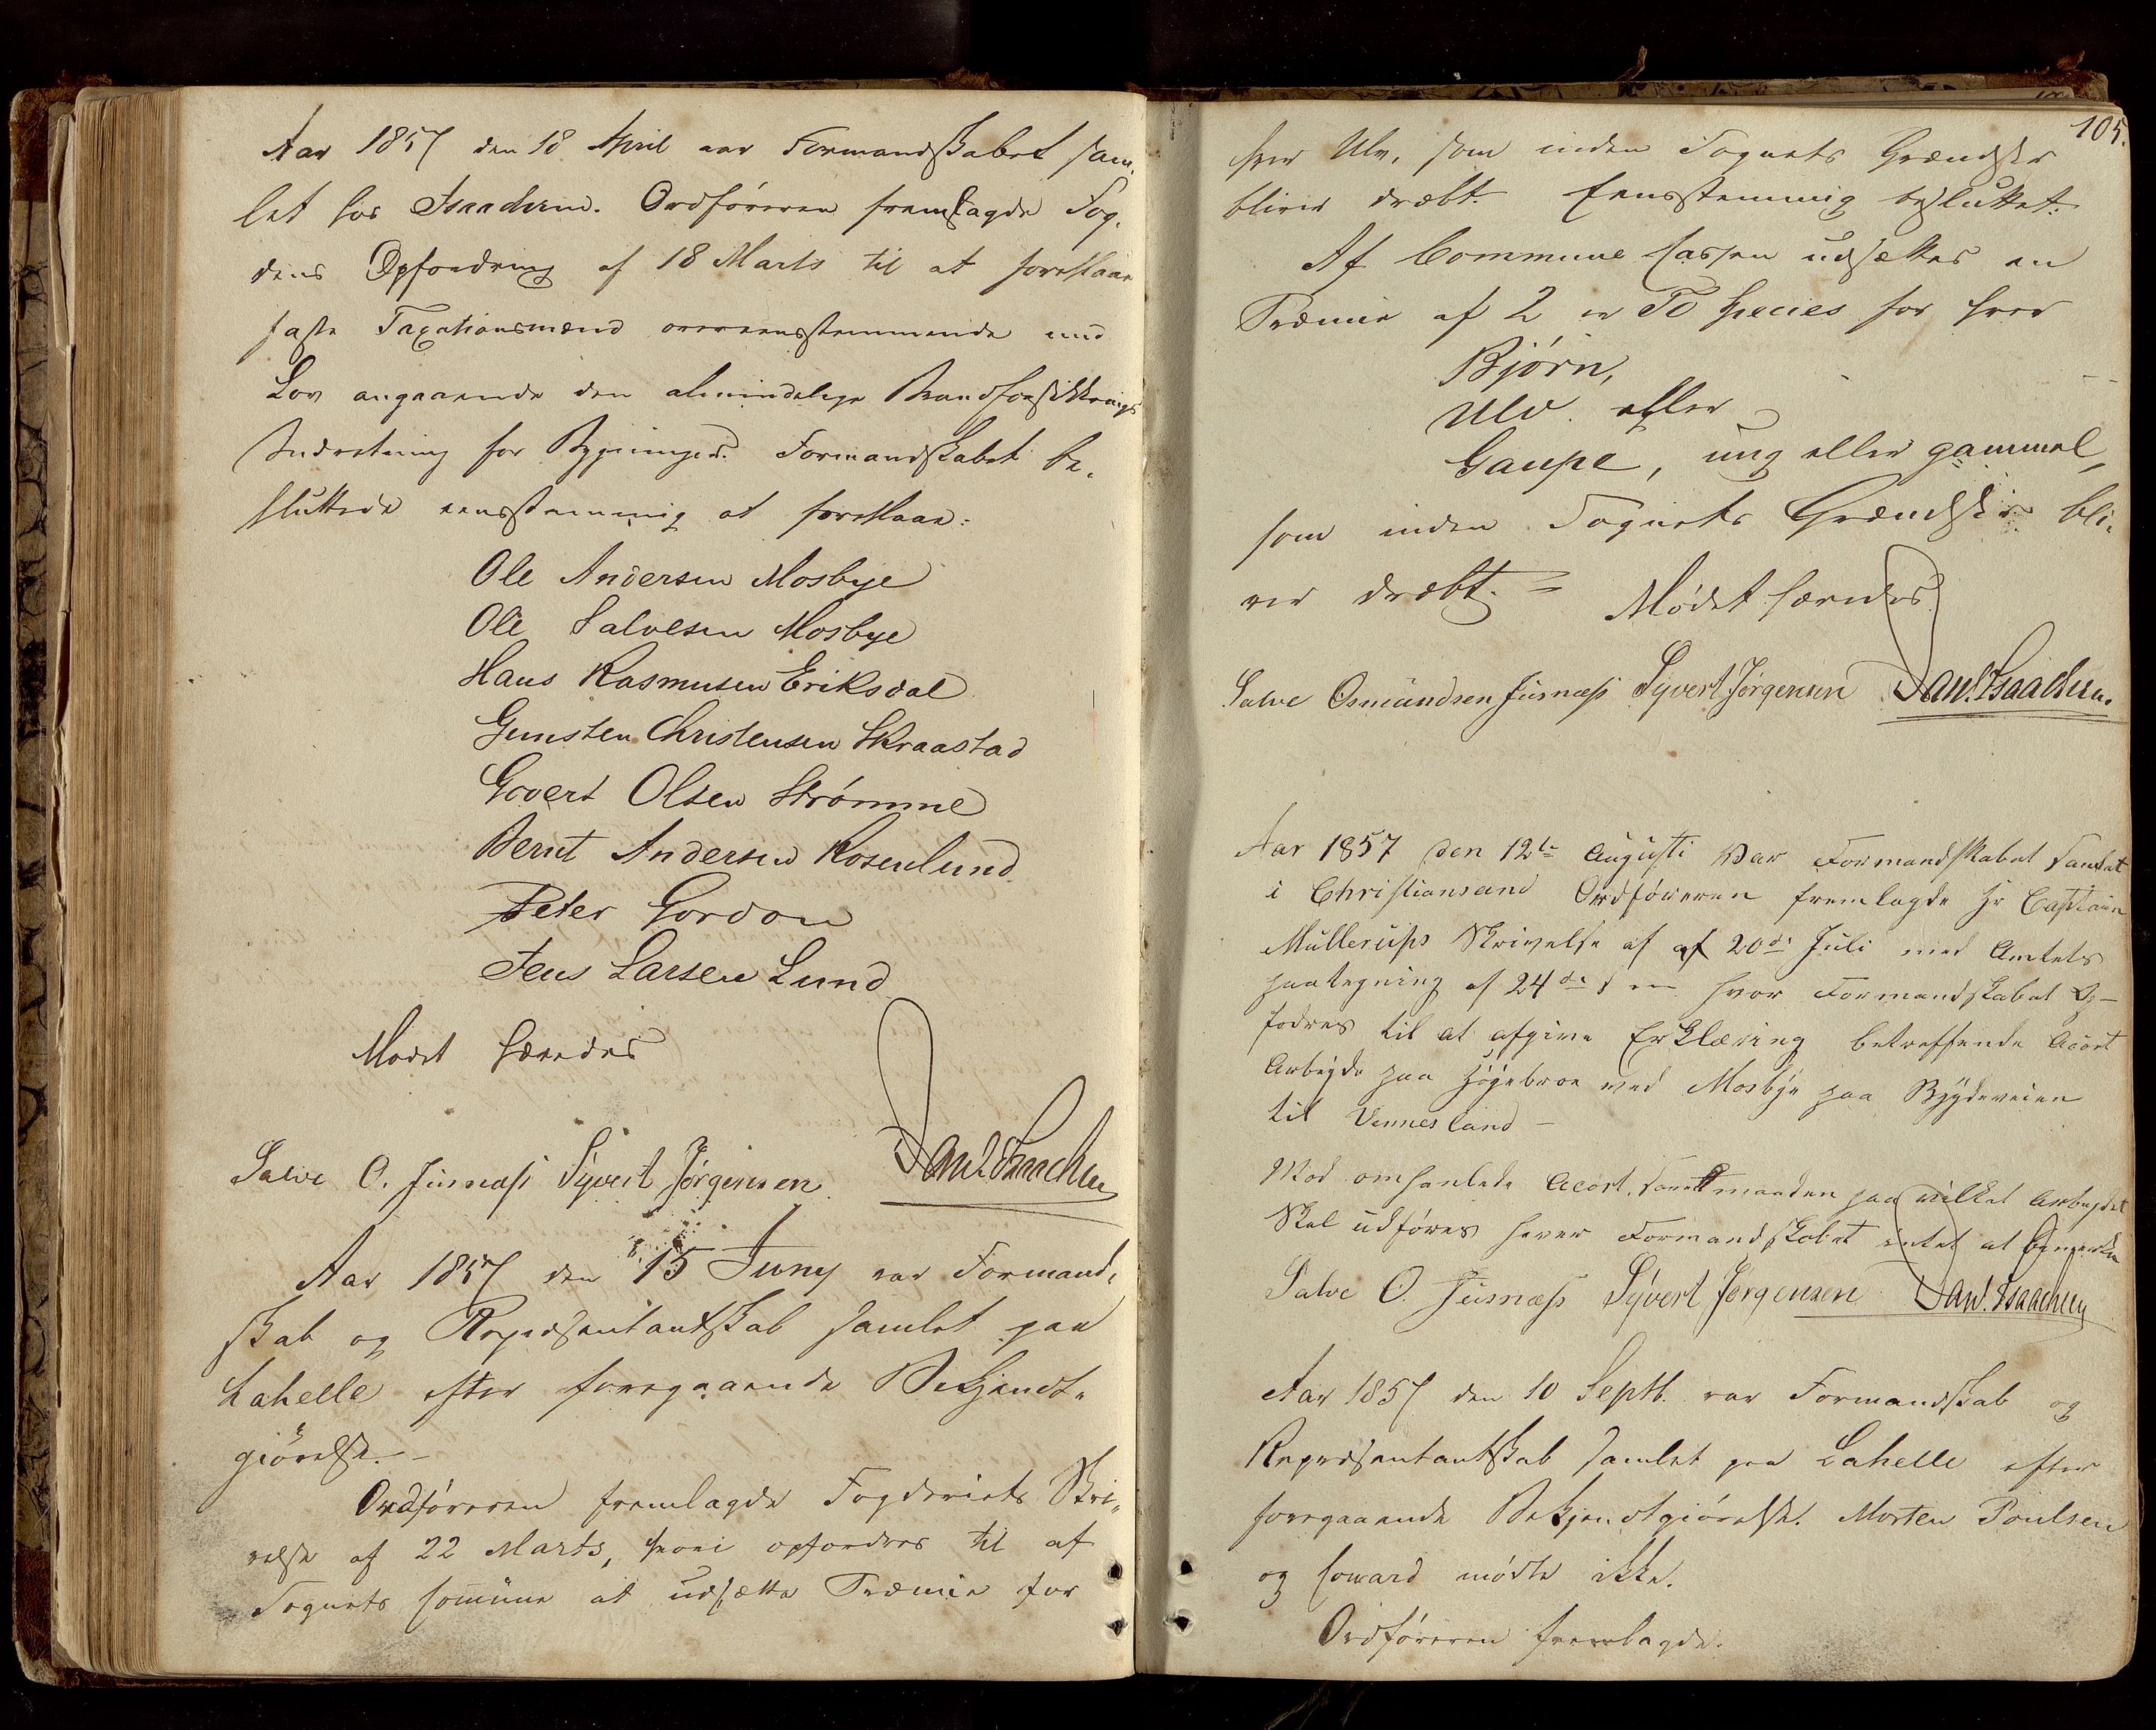 Aar 1857 den 18 April var Formandskabet sam-
let hos Isaachsen. Ordføreren fremlagde Fog-
dens Opfordring af 18 Marts til at foreslaae
faste Taxationsmænd overeensstemmende med
Lov angaaende den almindelige Brandforsikkrings
Indretning for Bygninger. Formandskabet be-
sluttede eensstemmig at foreslaae:
Ole Andersen Mosbye
Ole Salvesen Mosbye
Hans Rasmusen Eriksdal
Gunsten Christensen Skraastad
Govert Olsen Strømme
Bernt Andersen Rosenlund
Peter Gordon
Jens Larsen Lund
Mødet hævedes
Salve O. Jusnæss Syvert Jørgensen Dan. Isaachsen
Aar 1857 den 15 Juny var Formand-
skab og Repræsentantskab samlet paa
Lahelle efter foregaaende Bekjendt-
giörelse. -
Ordføreren fremlagde Fogderiets Skri-
velse af 22 Marts, hvori opfordres til af
Sognets Comüne at udsætte Præmie for
105.
hver Ulv, som inden Sognets Grændser
bliver dræbt. Eensstemmig besluttet:
Af Commune Cassen udsættes en
Præmie af 2 er To Species for hver
Bjørn,
Ulv eller
Gaupe, ung eller gammel,
som inden Sognets Grændser bli-
ver dræbt. = Mødet hævedes.
Salve Osmundsen Jusnæss Syvert Jørgensen Dan. Isaachsen.
Aar 1857 den 12te Augusti Var Formandskabet Samlet
i Christiansand Ordføreren fremlagde Hr Captain
Müllerups Skrivelse af af 20de Juli med Amtets
paategning af 24de hvor Formandskabet Op-
fodres til at afgive Erklæring betreffende Acort
Arbeyde paa Høyebroe ved Mosbye paa Bygdeveien
til Vennesland -
Mod omhanlede Acort, maaden paa vilket Arbeydet
Skal udføres haver Formandskabet intet at bemerke
Salve O. Jusnæss Syvert Jørgensen Dan. Isaachsen
Aar 1857 den 10 Septb. var Formandskab og
Repræsentantskab samlet paa Lahelle efter
foregaaende Bekjendtgiörelse. Morten Poulsen
og Coward mødte ikke.
Ordføreren fremlagde.